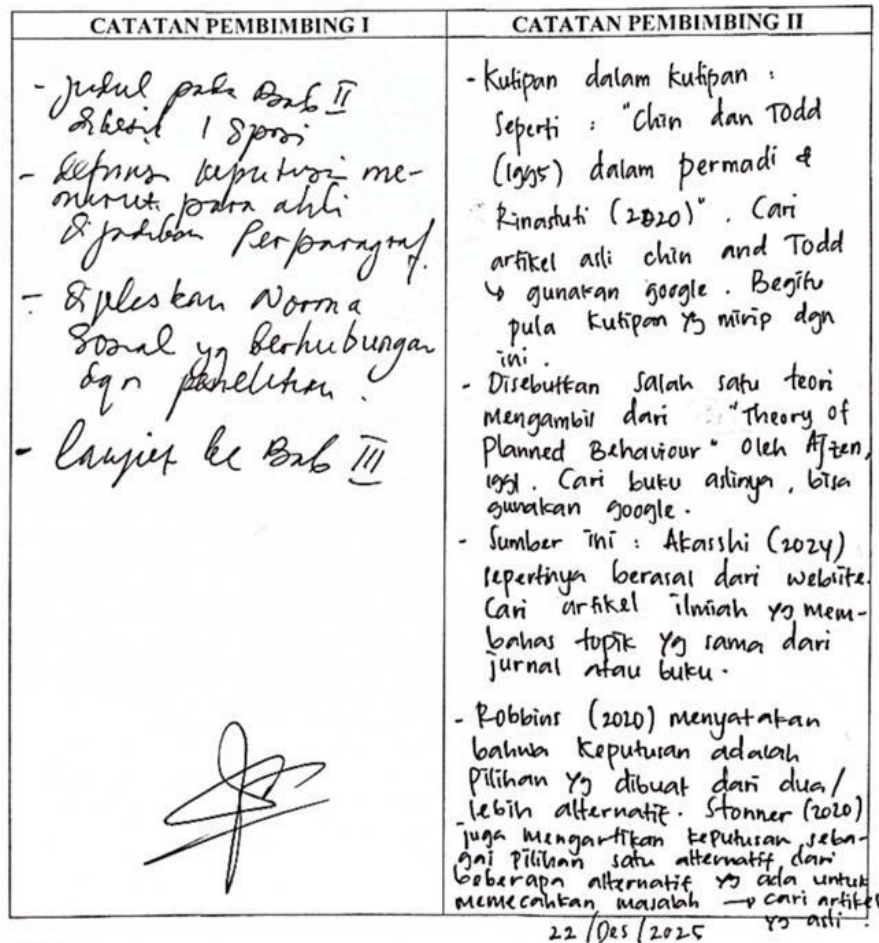 CATATAN PEMBIMBING I
- Judul pada Bab II
dikecil 1 Spasi
- definisi keputusan me-
nurut para ahli
dijadikan Perparagraf.
- dijelaskan Norma
Sosial yg berhubungan
dgn penelitian.
- lanjut ke Bab III
CATATAN PEMBIMBING II
- Kutipan dalam kutipan :
Seperti : "Chin dan Todd
(1995) dalam permadi &
Rinastuti (2020)". Cari
artikel asli chin and Todd
↳ gunakan google. Begitu
pula kutipan yg mirip dgn
ini.
- Disebutkan salah satu teori
mengambil dari "Theory of
Planned Behaviour" Oleh Ajzen,
1991. Cari buku aslinya, bisa
gunakan google.
- Sumber ini : Akasshi (2024)
sepertinya berasal dari website.
Cari artikel ilmiah yg mem-
bahas topik yg sama dari
jurnal atau buku.
- Robbins (2020) menyatakan
bahwa keputusan adalah
Pilihan yg dibuat dari dua/
lebih alternatif. Stonner (2020)
juga mengartikan keputusan seba-
gai pilihan satu alternatif dari
beberapa alternatif yg ada untuk
memecahkan masalah → cari artikel
yg asli.
22/Des/2025